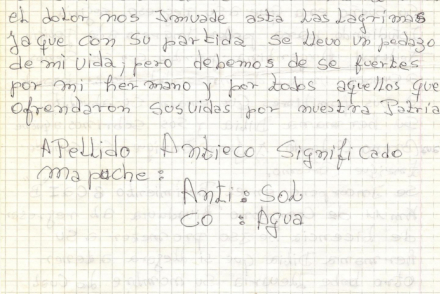 el dolor nos Invade asta las lagrimas
ya que con su partida se llevo un pedazo
de mi vida; pero debemos de se fuertes
por mi hermano y por todos aquellos que
ofrendaron sus vidas por nuestra Patria
APellido Antieco Significado
mapuche:
Anti : Sol
CO : Agua